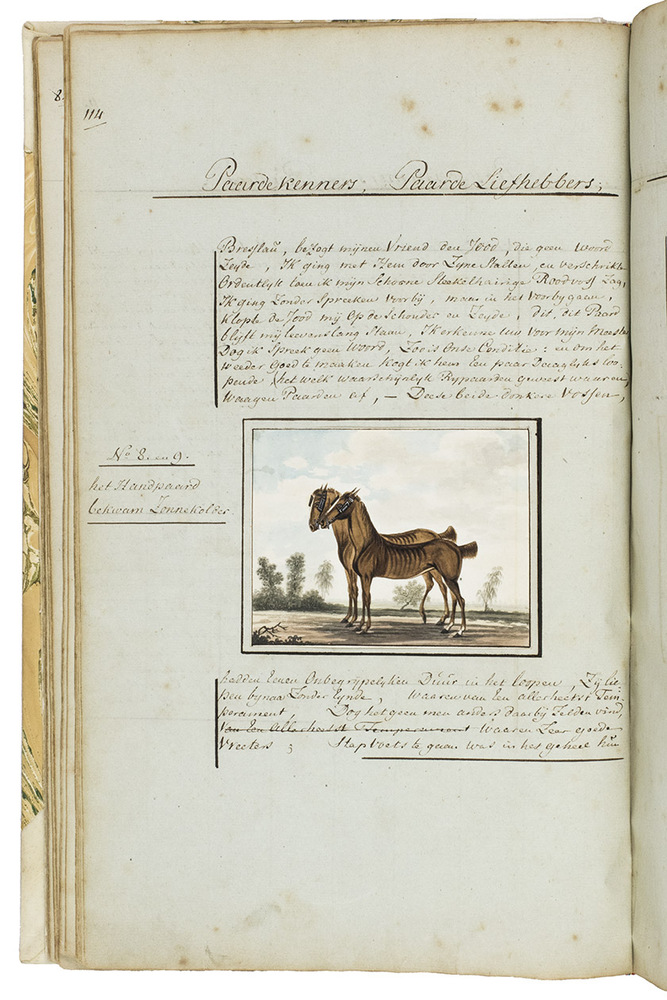 8.
114
Paardekenners, Paarde Liefhebbers;
Breslau, bezogt mijnen Vriend den Jood, die geen Woord
Zeyde, Ik ging met Hem door Zyne Stallen, en verschrikte
Ordentlyk toen ik mijn Schoone Steekelhairige Roodvos Zag,
Ik ging Zonder Spreeken Voorbij, maar in het Voorbygaan,
klopte de Jood mij Op de Schouder en Zeyde, dit, dit Paard
blyft mij Levenslang Staan, Ik erkenne Uw Voor mijn Meester
Dog ik Spreek geen Woord, Zoo is Onse Conditie: en om het
Weeder Goed te maaken Kogt ik hem Een paar loo-
pende (het Welk Waarschijnlyk Rypaarden geweest Waaren)
Waagen Paarden af, — Deese beide donkere Vossen,
No 8. en 9.
het Handpaard
bekwam Zonnekolder
hadden Eenen Onbegrypelyken Duur in het loopen, Zij lie-
pen bynaa Zonder Eynde, Waaren van Een allerheetst Tem-
perament Dog het geen men anders daarbij Zelden vind,
Van Een Allerheetst Temperament Waaren Zeer goede
Vreeters; Stapvoets te gaan was in het geheel hun